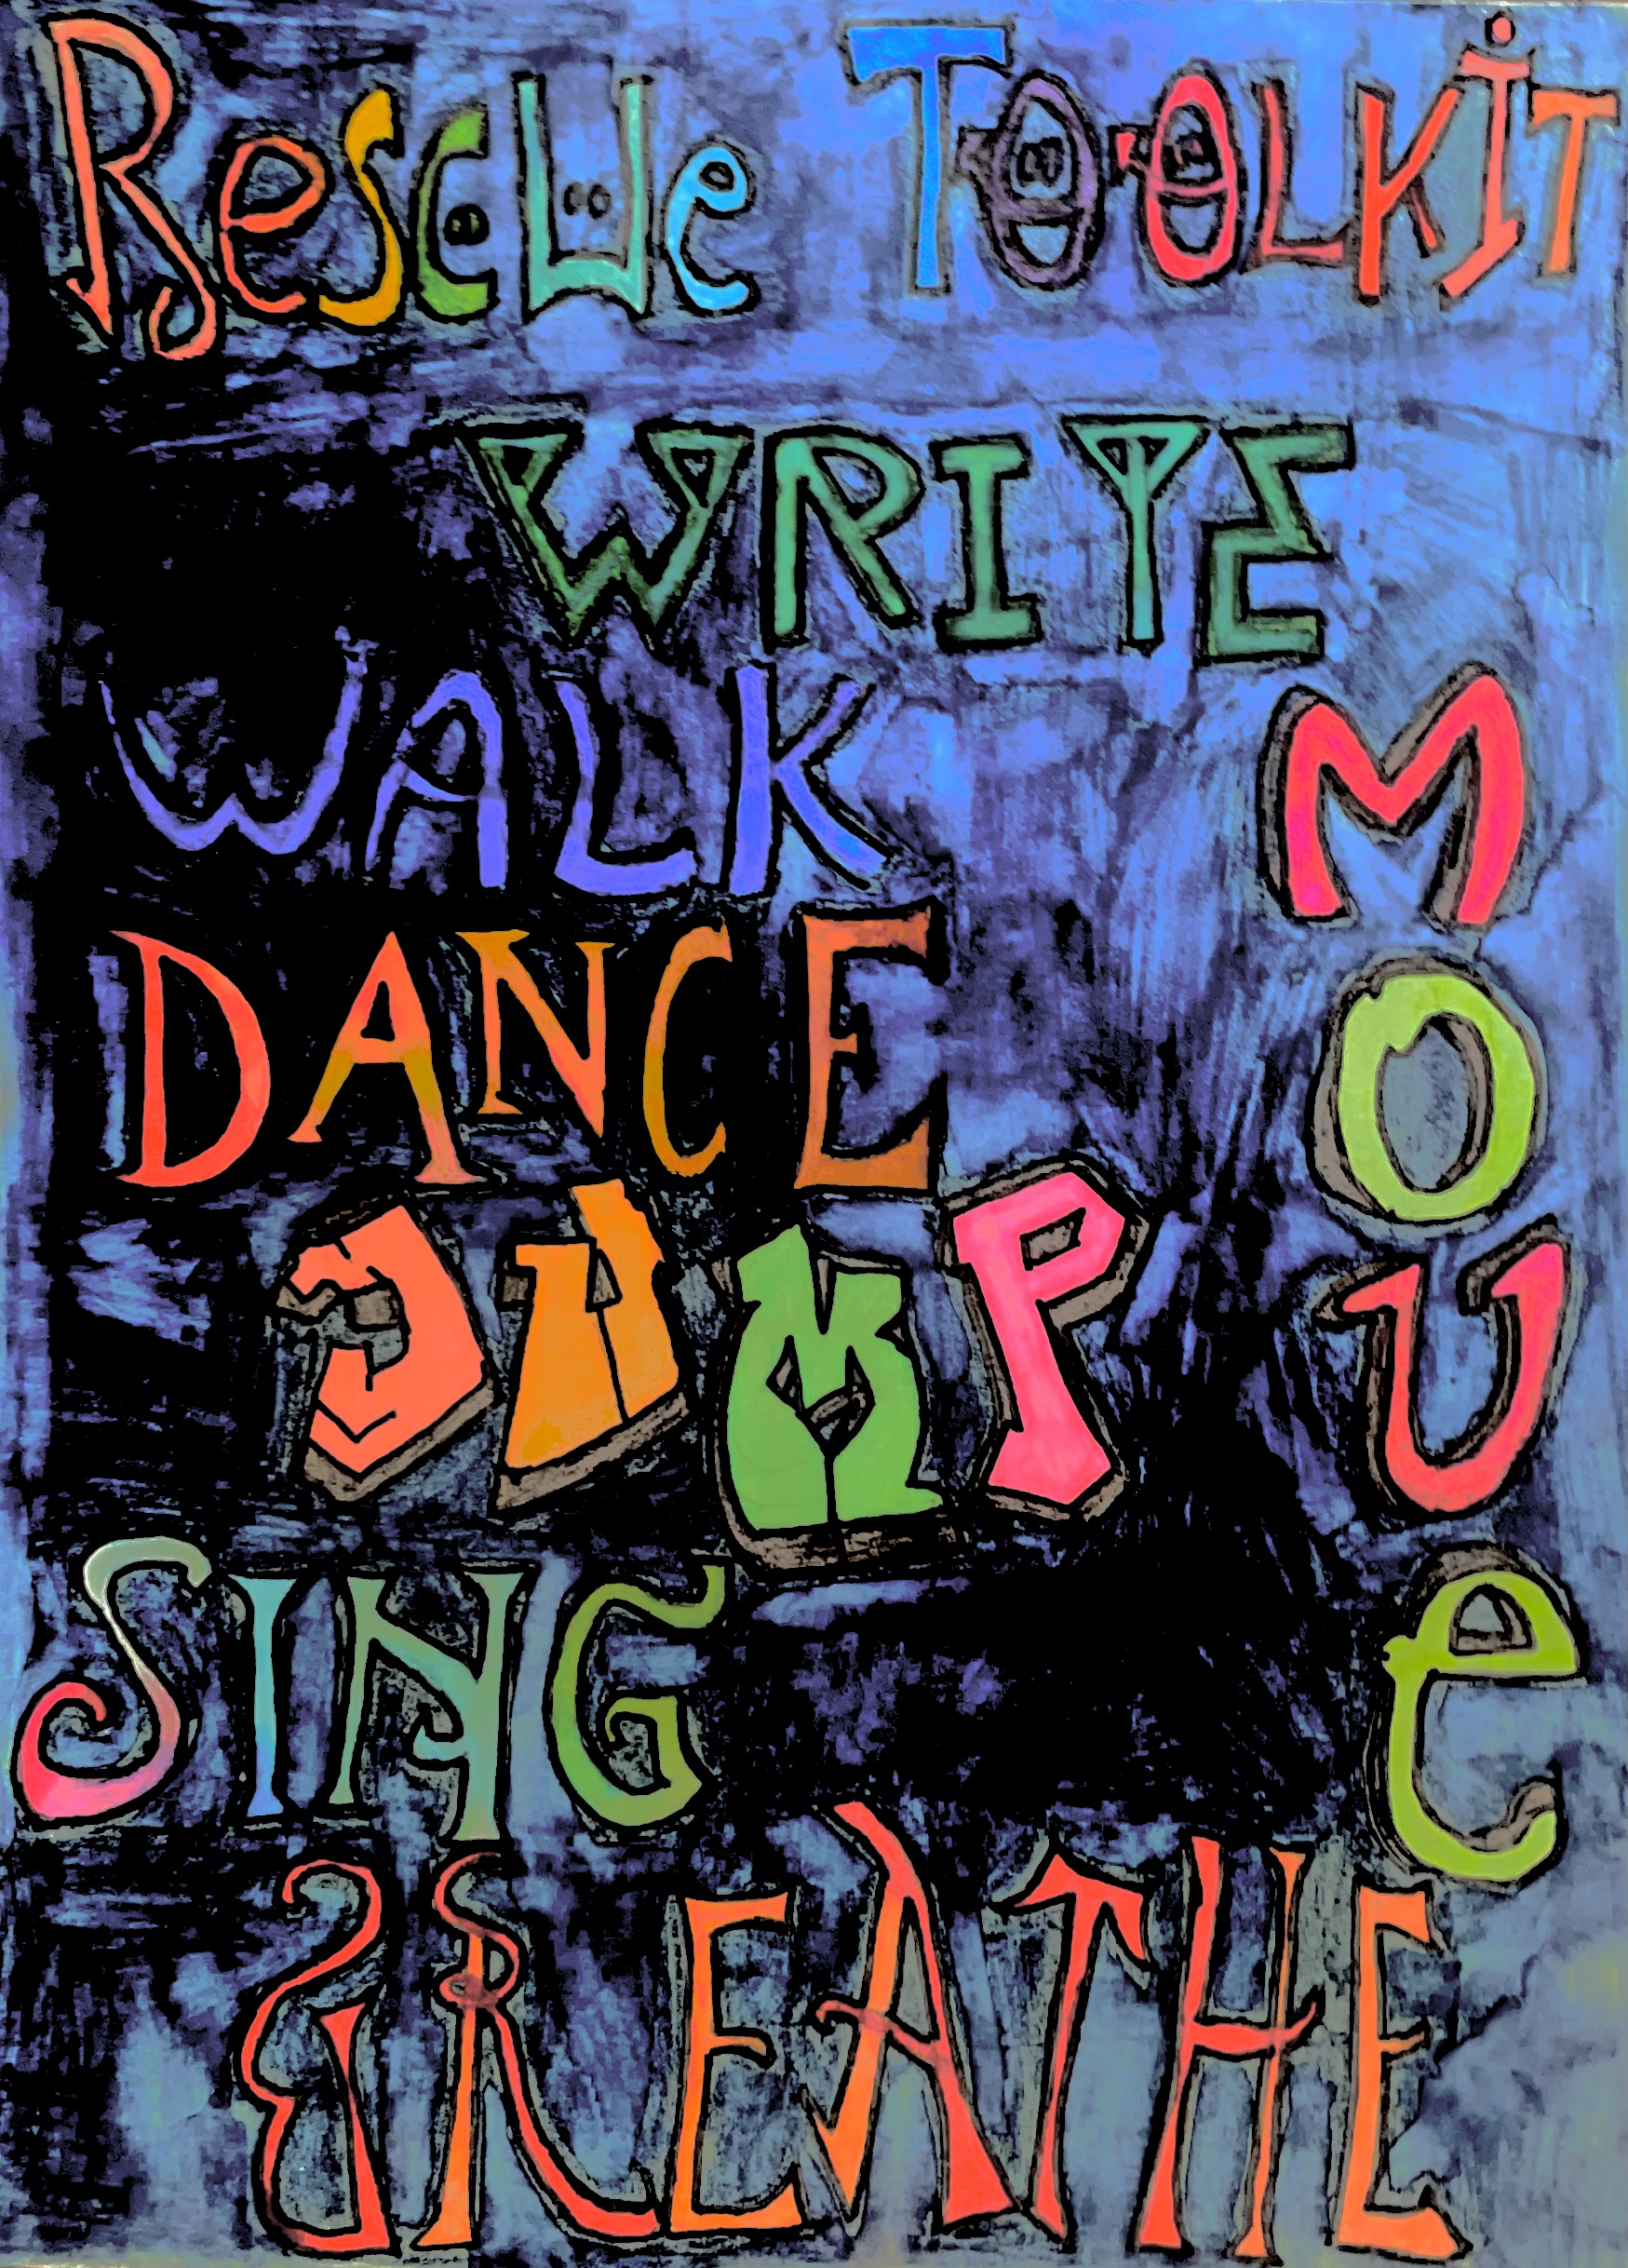 Rescue Toolkit
WRITE
WALK
DANCE
JUMP
SING
BREATHE
MOVe